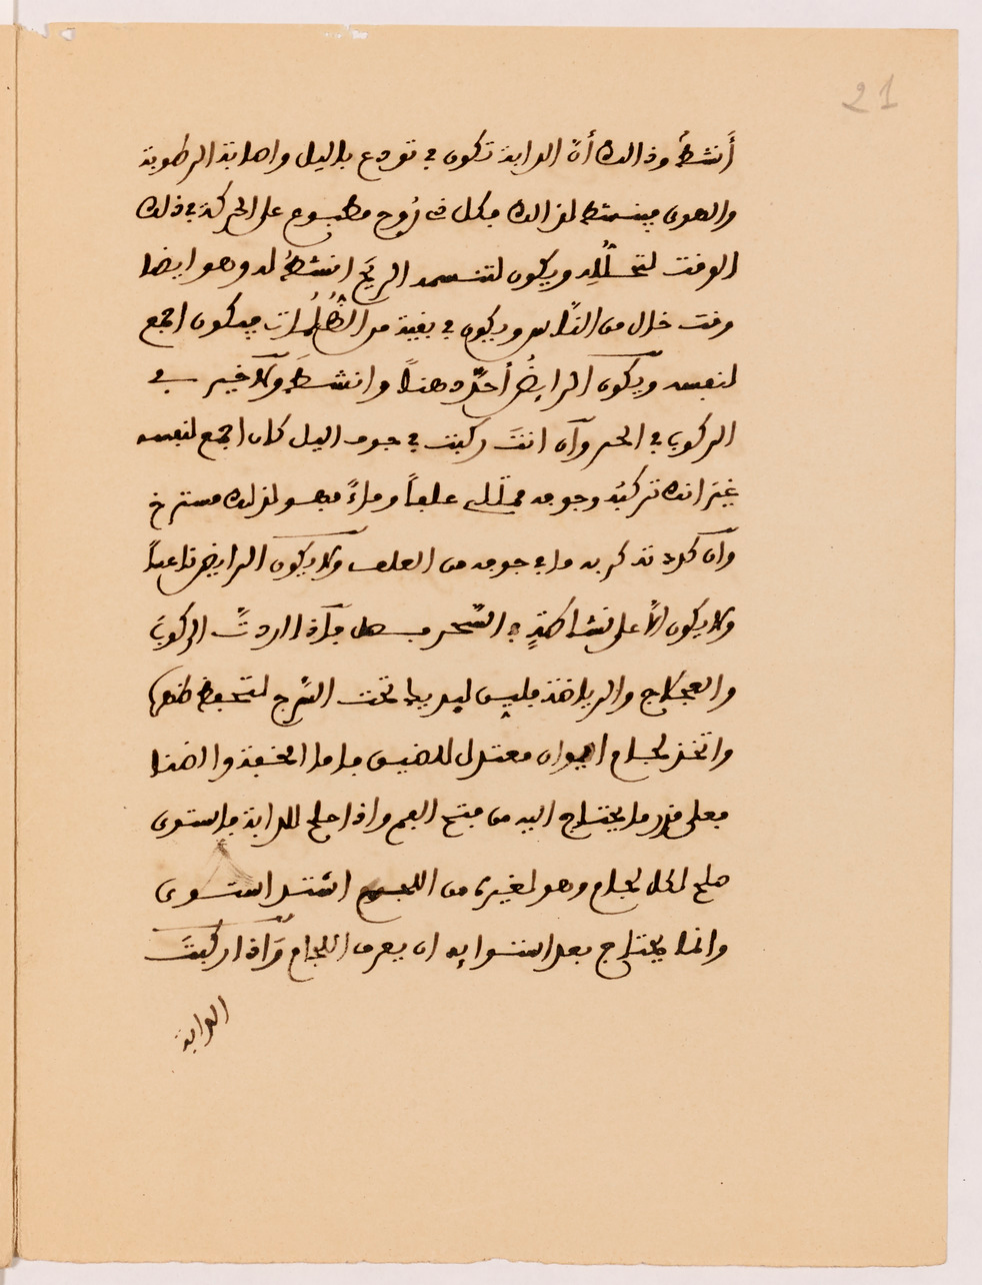 21
أَنشطُ وذالك أنّ الدابة تكون في تودع باليل واصابة الرطوبة
والهوى فينشط لذالك فكل ذى رُوح مطبوع على الحركة في ذلك
الوقت لتحلُّلِه ويكون لتنسمه الريح انشطُ له وهو ايضا
وقت خال من النّاس ويكون في بقية من الظُلُمات فيكون اجمع
لنفسه ويكون الرايضُ أحدّ ذهناً وانشطَ ولا خير في
الركوب في الحر وان انتَ ركبت في جوف اليل كان اجمع لنفسه
غير انك تركبُه وجوفه ممتلى علفاً وماءً فهو لذلك مسترخ
وان كده تذكر به ما في جوفه من العلف ولا يكون الرايض ناعساً
ولا يكون الاّ على نشاطهٍ في السّحر فصل فاذا اردتَّ الركوبَ
والعجلاج والرياضة فليس ليربط تحت السّرج لتحفظ ظهرها
واتخذ لجام الوان معتدل للضيق فاما الخفة والضنا
فعلى قدر ما يحتاج اليه من فتح الفم واذا صلح للدابة فاستوى
صلح لكل لجام وهو لغيره من اللجم اشتد استوى
وانما يحتاج بعد استوايه ان يعرف اللجام وَاذا ركبتَ
الدابة